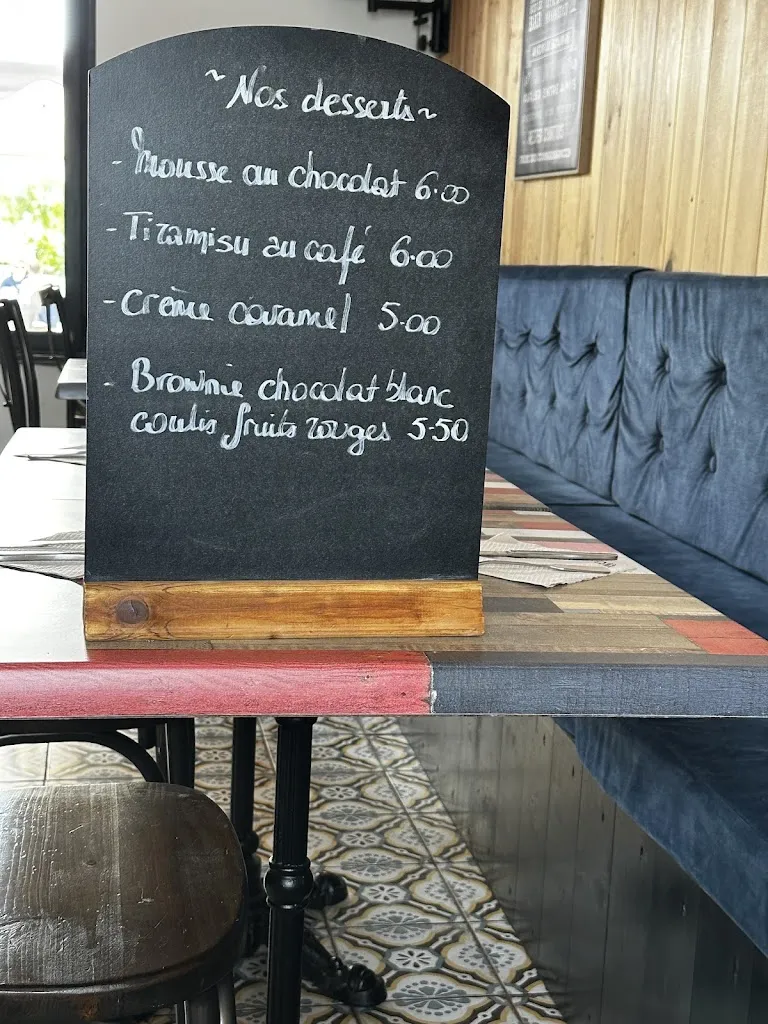 ~Nos desserts~
- Mousse au chocolat 6.00
- Tiramisu au café 6.00
- Crème caramel 5.00
- Brownie chocolat blanc
coulis fruits rouges 5.50